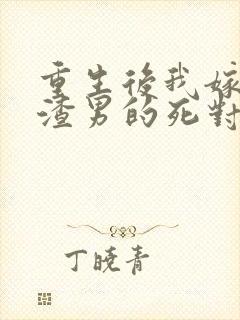 重生後我嫁
渣男的死對
丁曉青